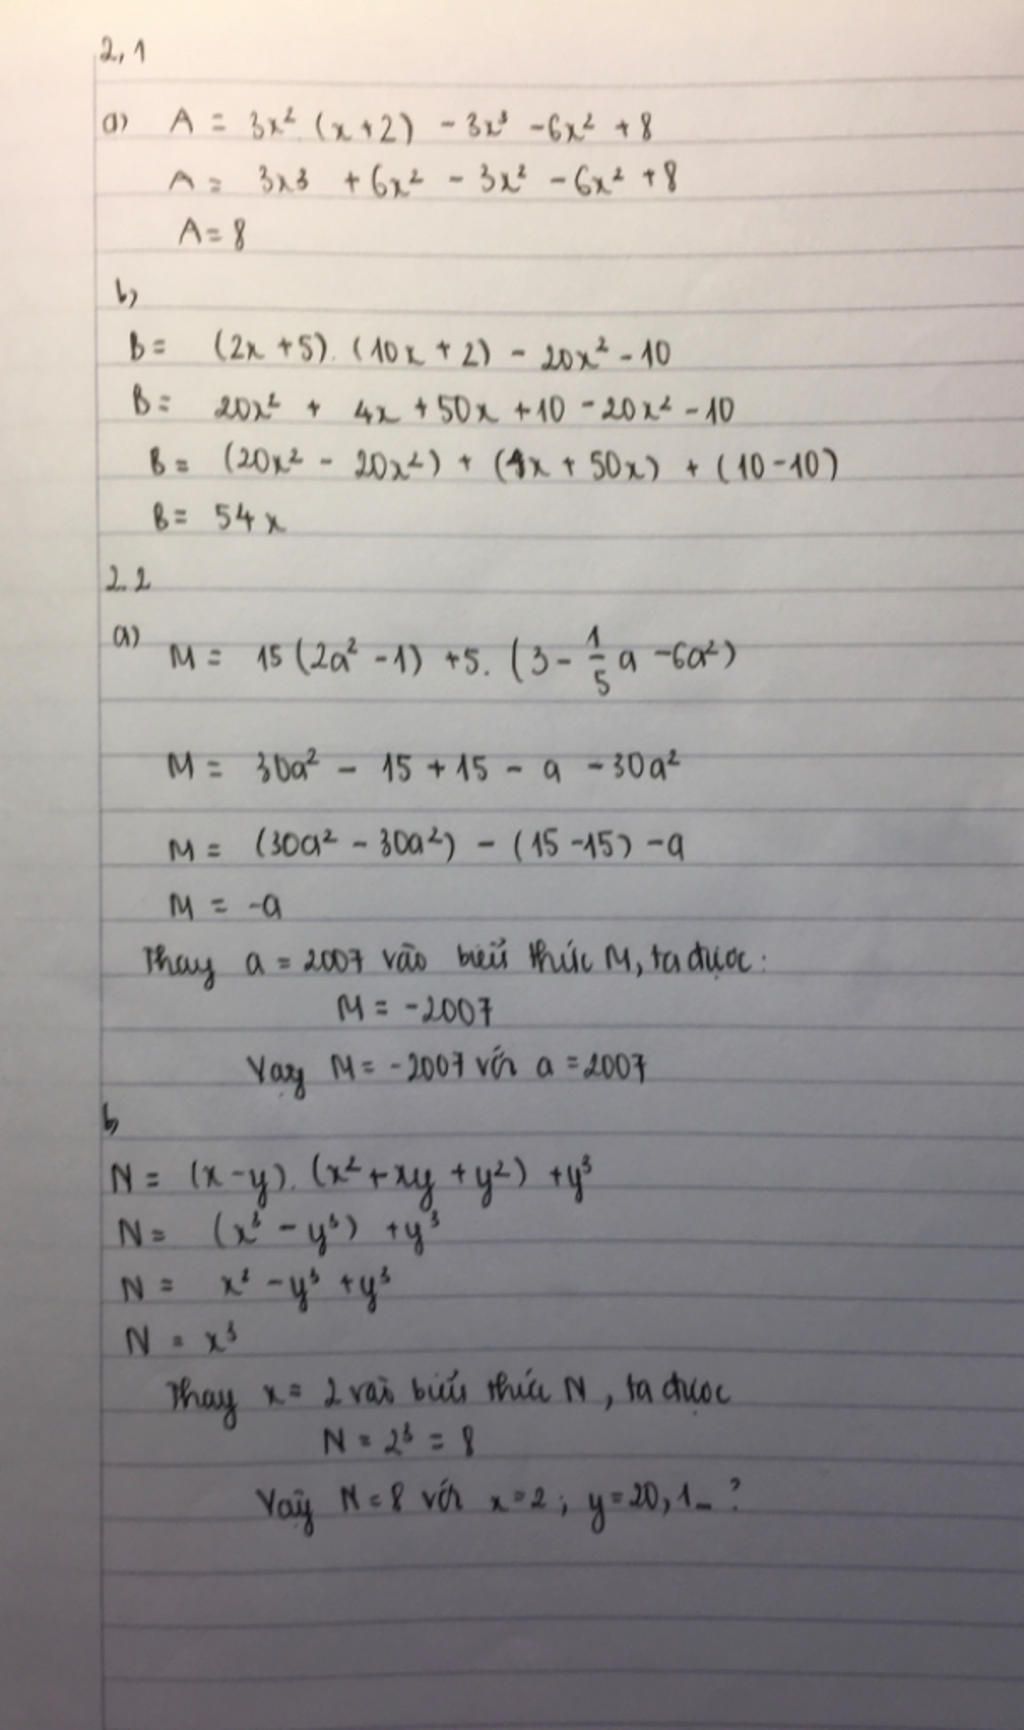 2,1
a) A = 3x² (x+2) - 3x³ - 6x² + 8
A = 3x3 + 6x² - 3x² - 6x² + 8
A = 8
b)
B = (2x + 5). (10x + 2) - 20x² - 10
B = 20x² + 4x + 50x + 10 - 20x² - 10
B = (20x² - 20x²) + (4x + 50x) + (10 - 10)
B = 54x
2.2
a) M = 15 (2a² - 1) + 5. (3 - 1/5 a - 6a²)
M = 30a² - 15 + 15 - a - 30a²
M = (30a² - 30a²) - (15 - 15) - a
M = -a
Thay a = 2007 vào biểu thức M, ta được:
M = -2007
Vậy M = -2007 với a = 2007
b,
N = (x - y). (x² + xy + y²) + y³
N = (x³ - y³) + y³
N = x² - y³ + y³
N = x³
Thay x = 2 vào biểu thức N, ta được
N = 2³ = 8
Vậy N = 8 với x = 2; y = 20, 1_ ?